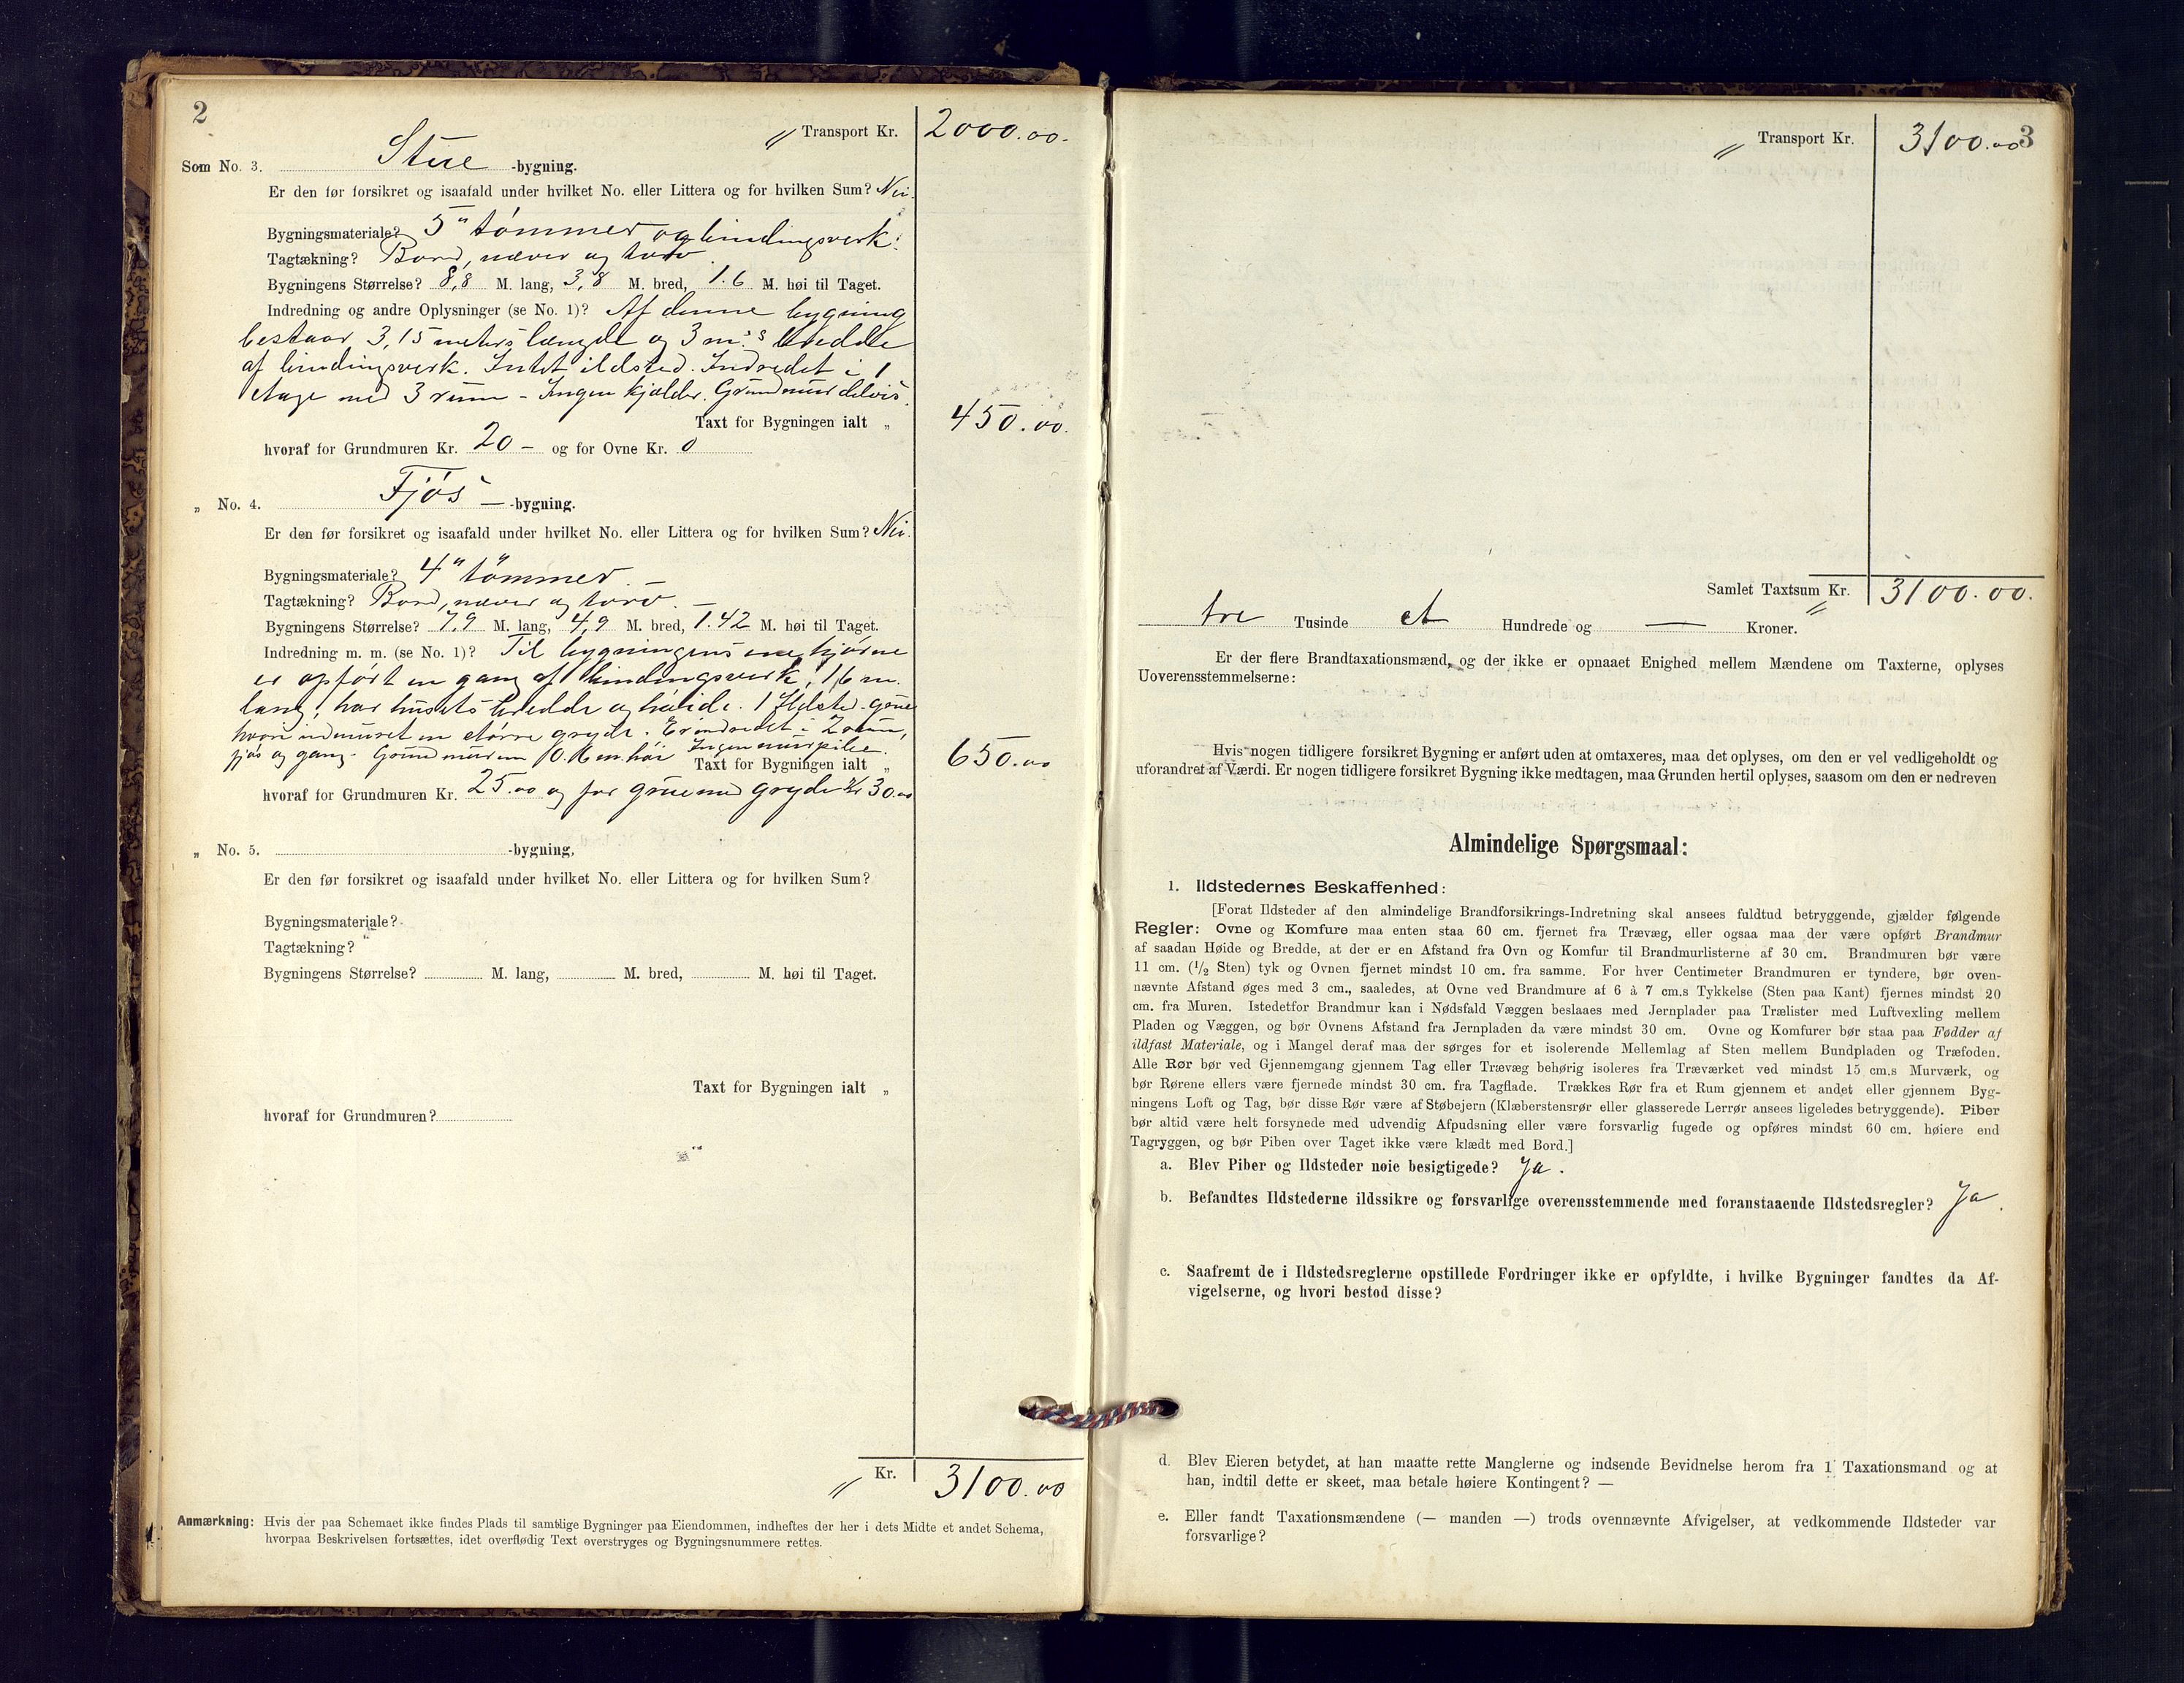 2
Transport Kr. 2000.00.
Som No. 3. Stue -bygning.
Er den før forsikret og isaafald under hvilket No. eller Littera og for hvilken Sum? Nei.
Bygningsmateriale? 5" tømmer og bindingsverk.
Tagtækning? Bord, næver og torv.
Bygningens Størrelse? 8,8 M. lang, 3,8 M. bred, 1.6 M. høi til Taget.
Indredning og andre Oplysninger (se No. 1)? Af denne bygning
bestaar 3,15 meters længde og 3 m.s bredde
af bindingsverk. Intet ildsted. Indredet i 1
etage med 3 rum - Ingen kjælder. Grundmur delvis.
Taxt for Bygningen ialt „ 450.00.
hvoraf for Grundmuren Kr. 20 - og for Ovne Kr. 0
„ No. 4. Fjøs - -bygning.
Er den før forsikret og isaafald under hvilket No. eller Littera og for hvilken Sum? Nei.
Bygningsmateriale? 4" tømmer. -
Tagtækning? Bord, næver og torv. -
Bygningens Størrelse? 7,9 M. lang, 4,9 M. bred, 1.42 M. høi til Taget.
Indredning m. m. (se No. 1)? Til bygningens ene hjørne
er opført en gang af bindingsverk, 1,6 m.
lang, har husets bredde og høide. 1 Ildsted - grue
hvori indmuret en større gryde. Er indredet i 2 rum,
fjøs og gang. Grundmuren 0.16 m. høi Ingen murpibe.
Taxt for Bygningen ialt „ 650.00
hvoraf for Grundmuren Kr. 25.00 og for grue med gryde Kr 30.00
„ No. 5. -bygning,
Er den før forsikret og isaafald under hvilket No. eller Littera og for hvilken Sum?
Bygningsmateriale?
Tagtækning?
Bygningens Størrelse? M. lang, M. bred, M. høi til Taget.
Taxt for Bygningen ialt „
hvoraf for Grundmuren?
Kr. 3100.00
Anmærkning: Hvis der paa Schemaet ikke findes Plads til samtlige Bygninger paa Eiendommen, indheftes der her i dets Midte et andet Schema,
hvorpaa Beskrivelsen fortsættes, idet overflødig Text overstryges og Bygningsnummere rettes.
3
Transport Kr. 3100.00
Samlet Taxtsum Kr. 3100.00.
tre Tusinde et Hundrede og — Kroner.
Er der flere Brandtaxationsmænd, og der ikke er opnaaet Enighed mellem Mændene om Taxterne, oplyses
Uoverensstemmelserne:
Hvis nogen tidligere forsikret Bygning er anført uden at omtaxeres, maa det oplyses, om den er vel vedligeholdt og
uforandret af Værdi. Er nogen tidligere forsikret Bygning ikke medtagen, maa Grunden hertil oplyses, saasom om den er nedreven
Almindelige Spørgsmaal:
1. Ildstedernes Beskaffenhed:
[Forat Ildsteder af den almindelige Brandforsikrings-Indretning skal ansees fuldtud betryggende, gjælder følgende
Regler: Ovne og Komfure maa enten staa 60 cm. fjernet fra Trævæg, eller ogsaa maa der være opført Brandmur
af saadan Høide og Bredde, at der er en Afstand fra Ovn og Komfur til Brandmurlisterne af 30 cm. Brandmuren bør være
11 cm. (1/2 Sten) tyk og Ovnen fjernet mindst 10 cm. fra samme. For hver Centimeter Brandmuren er tyndere, bør oven-
nævnte Afstand øges med 3 cm., saaledes, at Ovne ved Brandmure af 6 à 7 cm.s Tykkelse (Sten paa Kant) fjernes mindst 20
cm. fra Muren. Istedetfor Brandmur kan i Nødsfald Væggen beslaaes med Jernplader paa Trælister med Luftvexling mellem
Pladen og Væggen, og bør Ovnens Afstand fra Jernpladen da være mindst 30 cm. Ovne og Komfurer bør staa paa Fødder af
ildfast Materiale, og i Mangel deraf maa der sørges for et isolerende Mellemlag af Sten mellem Bundpladen og Træfoden.
Alle Rør bør ved Gjennemgang gjennem Tag eller Trævæg behørig isoleres fra Træværket ved mindst 15 cm.s Murværk, og
bør Rørene ellers være fjernede mindst 30 cm. fra Tagflade. Trækkes Rør fra et Rum gjennem et andet eller gjennem Byg-
ningens Loft og Tag, bør disse Rør være af Støbejern (Klæberstensrør eller glasserede Lerrør ansees ligeledes betryggende). Piber
bør altid være helt forsynede med udvendig Afpudsning eller være forsvarlig fugede og opføres mindst 60 cm. høiere end
Tagryggen, og bør Piben over Taget ikke være klædt med Bord.]
a. Blev Piber og Ildsteder nøie besigtigede? Ja.
b. Befandtes Ildstederne ildssikre og forsvarlige overensstemmende med foranstaaende Ildstedsregler? Ja.
c. Saafremt de i Ildstedsreglerne opstillede Fordringer ikke er opfyldte, i hvilke Bygninger fandtes da Af-
vigelserne, og hvori bestod disse?
d. Blev Eieren betydet, at han maatte rette Manglerne og indsende Bevidnelse herom fra 1 Taxationsmand og at
han, indtil dette er skeet, maa betale høiere Kontingent? —
e. Eller fandt Taxationsmændene (— manden —) trods ovennævnte Afvigelser, at vedkommende Ildsteder var
forsvarlige?